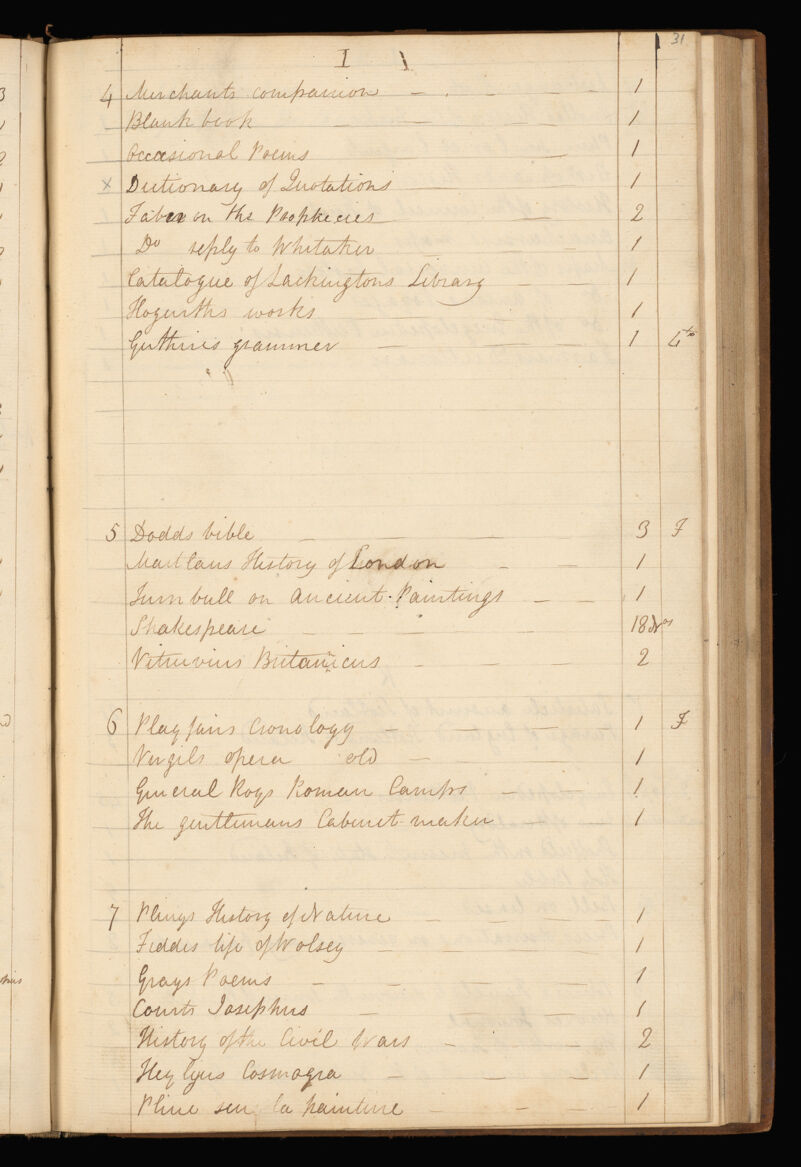 31
I
4 Merchants companion 1
Blank book 1
Occasional Poems 1
x Dictionary of Quotations 1
Faber on the Prophecies 2
Do reply to Whitaker 1
Catalogue of Lackingtons Library 1
Hogarths works 1
Guthries grammer 1 4to
5 Dodds bible 3 F
Maitlans History of London 1
Turnbull on ancient Paintings 1
Shakespeare 18 Nos
Vitruvius Britanicus 2
6 Playfairs Cronology 1 F
Vergils opera old 1
General Roys Roman Camps 1
The gentlemans Cabinet maker 1
7 Plinys History of Nature 1
Fiddes life of Wolsey 1
Grays Poems 1
Courts Josephus 1
History of the Civil Wars 2
Heylyns Cosmogra 1
Pline seu la painture 1